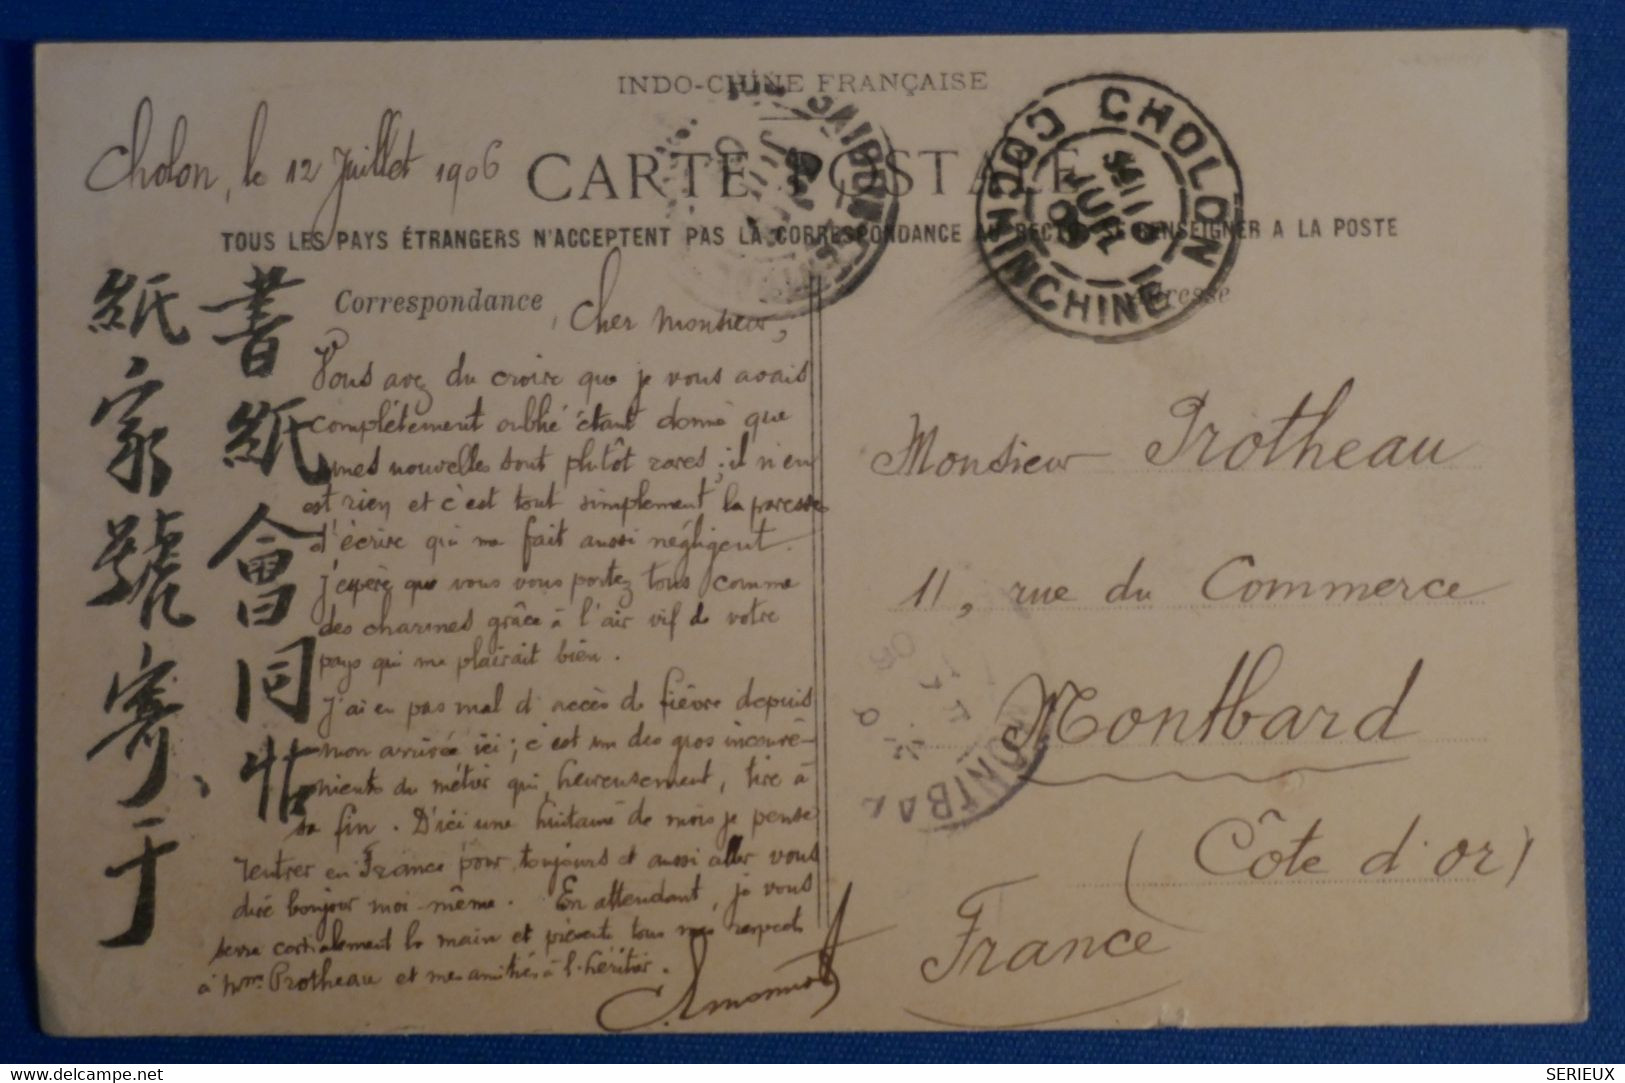 INDO-CHINE FRANÇAISE
Cholon, le 12 Juillet 1906
CARTE POSTALE
TOUS LES PAYS ÉTRANGERS N'ACCEPTENT PAS LA CORRESPONDANCE AU RECTO SE RENSEIGNER A LA POSTE
CHOLON
COCHINCHINE
Correspondance
Adresse
書紙會同帖
紙家號寄、于
Cher Monsieur,
Vous avez du croire que je vous avais
complétement oublié étant donné que
mes nouvelles sont plutôt rares; il n'en
est rien et c'est tout simplement la paresse
d'écrire qui me fait aussi négligent.
J'espère que vous vous portez tous comme
des charmes grâce à l'air vif de votre
pays qui me plairait bien.
J'ai eu pas mal d'accès de fièvre depuis
mon arrivée ici; c'est un des gros inconvé-
nients du métier qui heureusement, tire à
sa fin. D'ici une huitaine de mois je pense
rentrer en France pour toujours et aussi aller vous
dire bonjour moi-même. En attendant, je vous
serre cordialement la main et présente tous mes respects
à Mme Protheau et mes amitiés à l'héritier.
Monsieur Protheau
11, rue du Commerce
Montbard
(Côte d'or)
France
MONTBAR
SERIEUX
delcampe.net